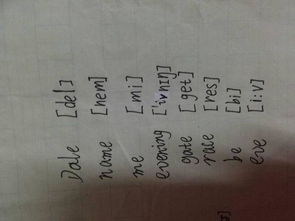 Dale [del]
name [nem]
me [mi]
evening ['ivnIŋ]
gate [get]
race [res]
be [bi]
eve [i:v]